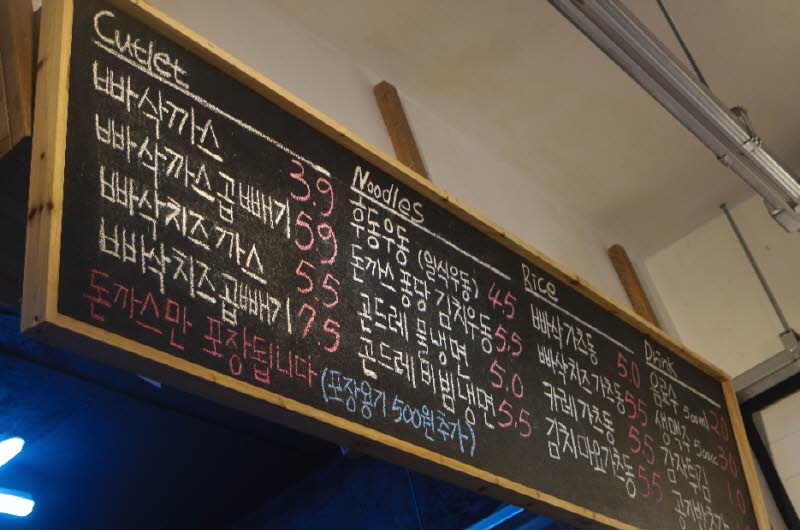 Cutlet
빠삭까스 3.9
빠삭까스곱빼기 5.9
빠삭치즈까스 5.5
빠삭치즈곱빼기 7.5
돈까스만 포장됩니다
(포장용기 500원추가)
Noodles
우동우동 (일식우동) 4.5
돈까스 퐁당 김치우동 5.5
곤드레 물냉면 5.0
곤드레 비빔냉면 5.5
Rice
빠삭가츠동 5.0
빠삭치즈가츠동 5.5
카레가츠동 5.5
김치마요가츠동 5.5
Drink
음료수 500ml 2.0
생맥주 500cc 3.0
감자튀김
공기밥추가 1.0